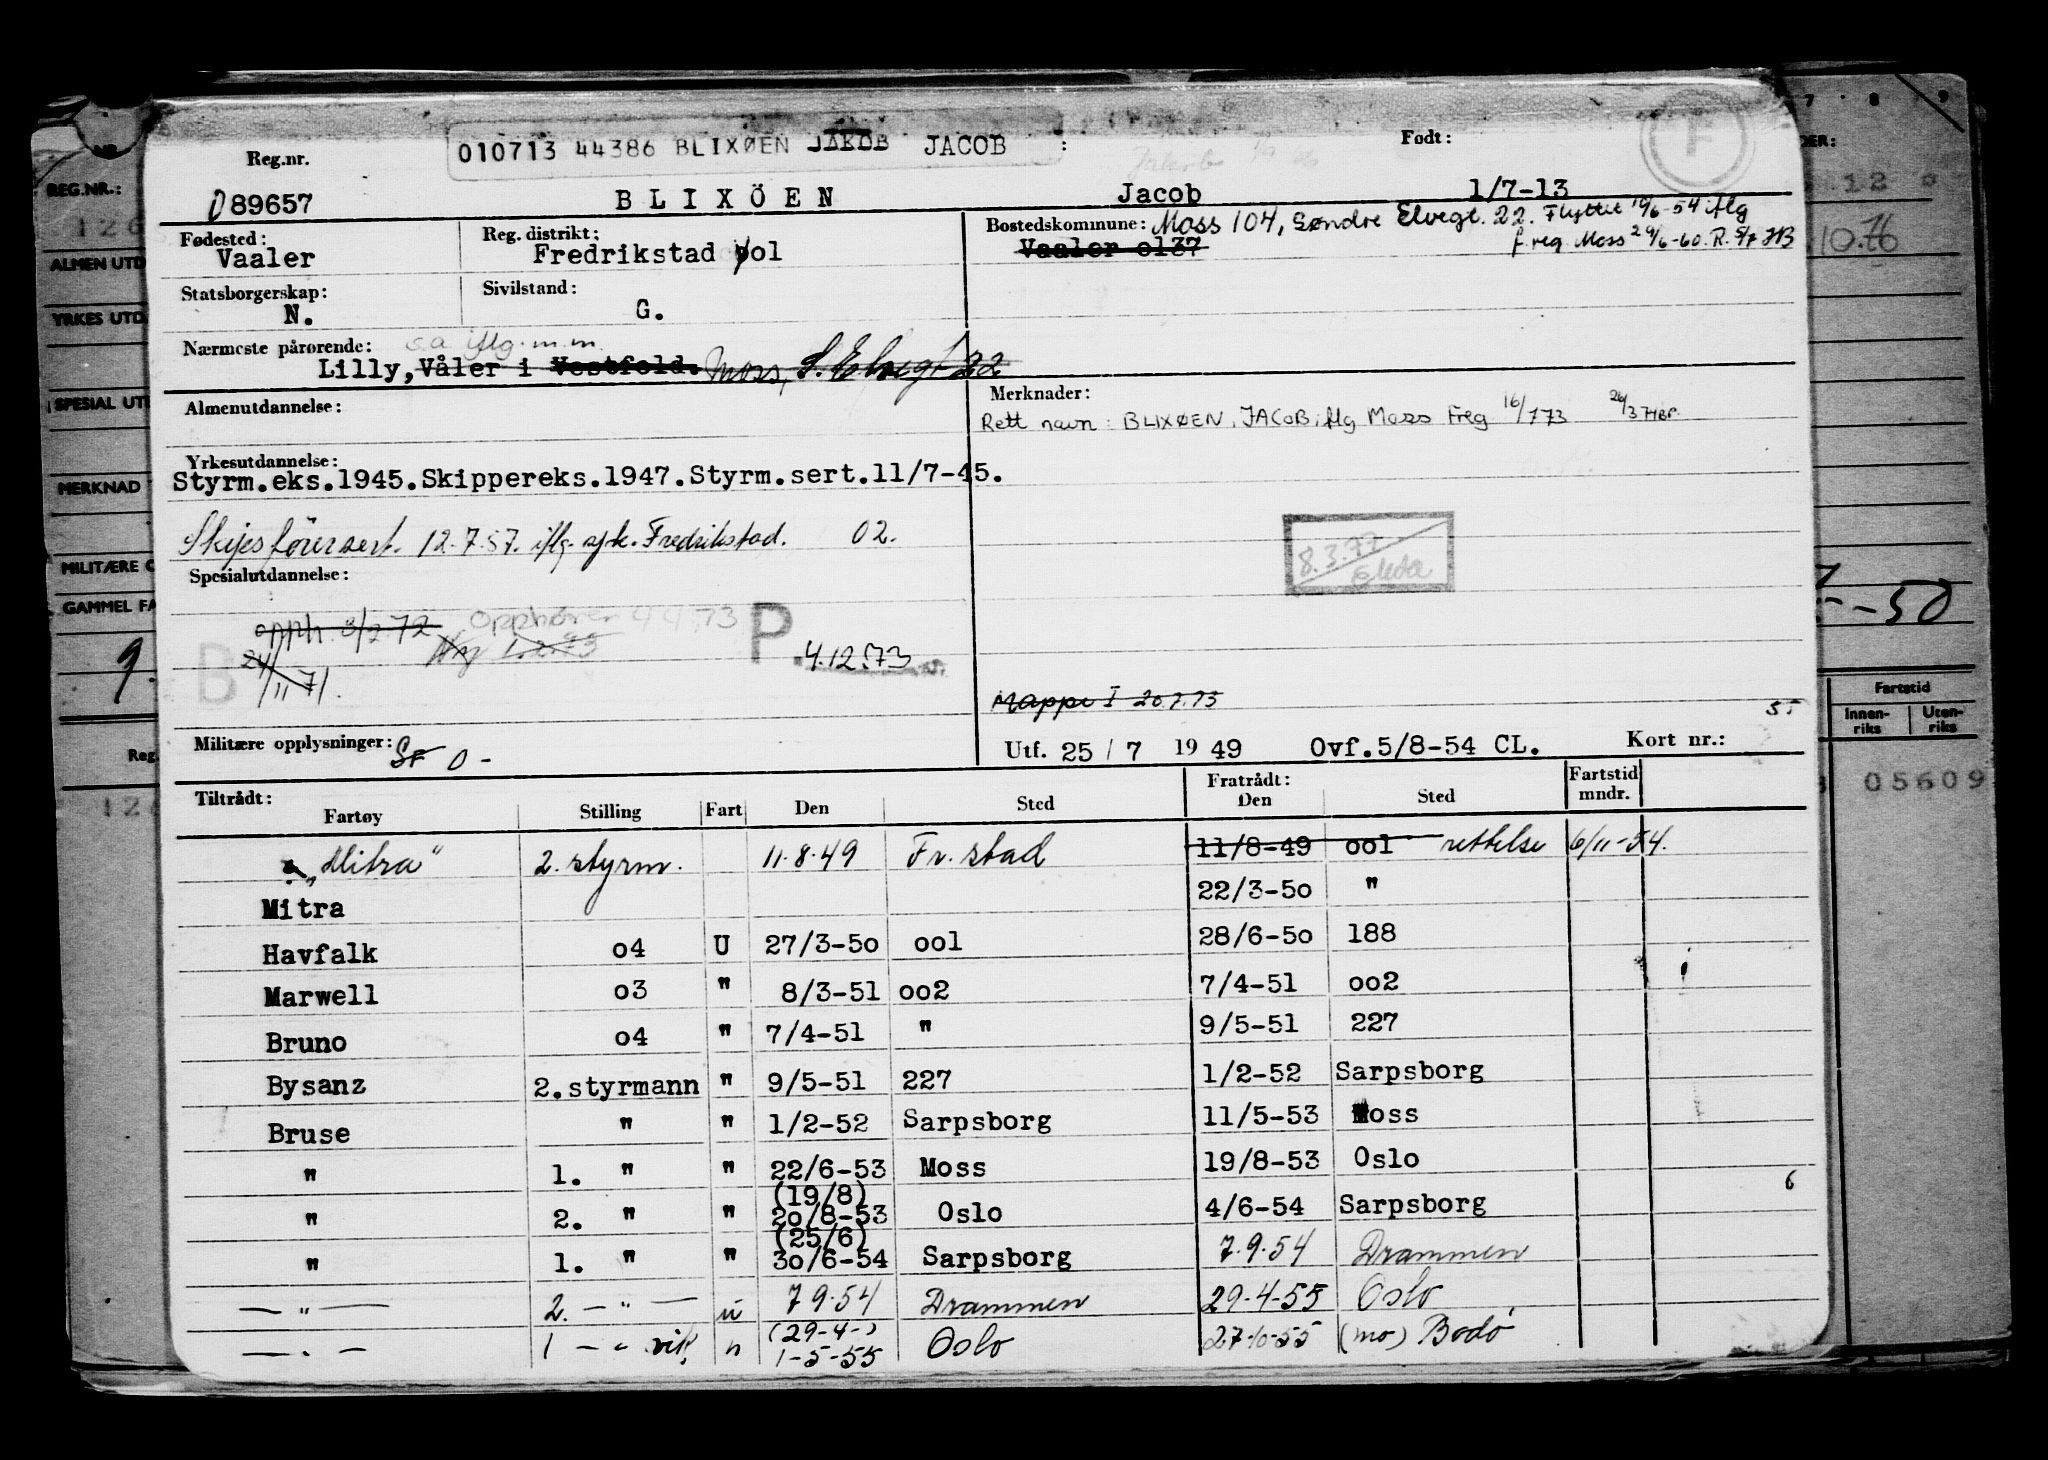 Reg.nr. 010713 44386 BLIXØEN JAKOB JACOB : Født:
089657 BLIXÖEN Jacob 1/7-13
Fødested: Vaaler
Reg. distrikt: Fredrikstad ool
Bostedskommune: Moss 104, Søndre Elvegt. 22. Flyttet 10/6-54 iflg
f.reg. Moss 29/6-60. R. 5/7 HB
Vaaler o137
Statsborgerskap: N.
Sivilstand: G.
Nærmeste pårørende: s.a. iflg. m.m.
Lilly, Våler i Vestfold. Moss, S. Elvegt 22
Almenutdannelse:
Merknader:
Rett navn: BLIXØEN, JACOB, iflg Moss Freg 16/1 73
Yrkesutdannelse:
Styrm.eks.1945.Skippereks.1947.Styrm.sert.11/7-45.
Skipsførersert. 12.7.57. iflg. sjk. Fredrikstad. 02.
8.3.77
Spesialutdannelse:
opph. 8/2 72 Opphører 4 4.73 P.
24/11 71. Ny 1.2.73 4.12.73
B
Mappe I 20.7.73
Militære opplysninger: SF 0 -
Utf. 25 / 7 1949 Ovf.5/8-54 CL. Kort nr.:
Tiltrådt: Fratrådt: Fartstid
Fartøy Stilling Fart Den Sted Den Sted mndr.
"Mitra" 2. styrm. 11.8.49 Fr.stad 11/8-49 ool rettelse 6/11-54.
Mitra 22/3-5o "
Havfalk o4 U 27/3-5o ool 28/6-5o 188
Marwell o3 " 8/3-51 oo2 7/4-51 oo2
Bruno o4 " 7/4-51 " 9/5-51 227
Bysanz 2.styrmann " 9/5-51 227 1/2-52 Sarpsborg
Bruse " " 1/2-52 Sarpsborg 11/5-53 Moss
" 1. " " 22/6-53 Moss 19/8-53 Oslo
(19/8)
" 2. " " 2o/8-53 Oslo 4/6-54 Sarpsborg
(25/6)
" 1. " " 3o/6-54 Sarpsborg 7.9.54 Drammen
— " — 2. — " — u 7 9.54 Drammen 29-4-55 Oslo
(29-4-)
— " — 1 — " vik. " 1-5-55 Oslo 27-10-55 (mo) Bodø
REG.NR.:
ALMEN UTD
YRKES UTD.
SPESIAL UT
MERKNAD
MILITÆRE O
GAMMEL FA
9.
Reg.
7 8 9
-50
Fartstid
Innen-riks Uten-riks
05609